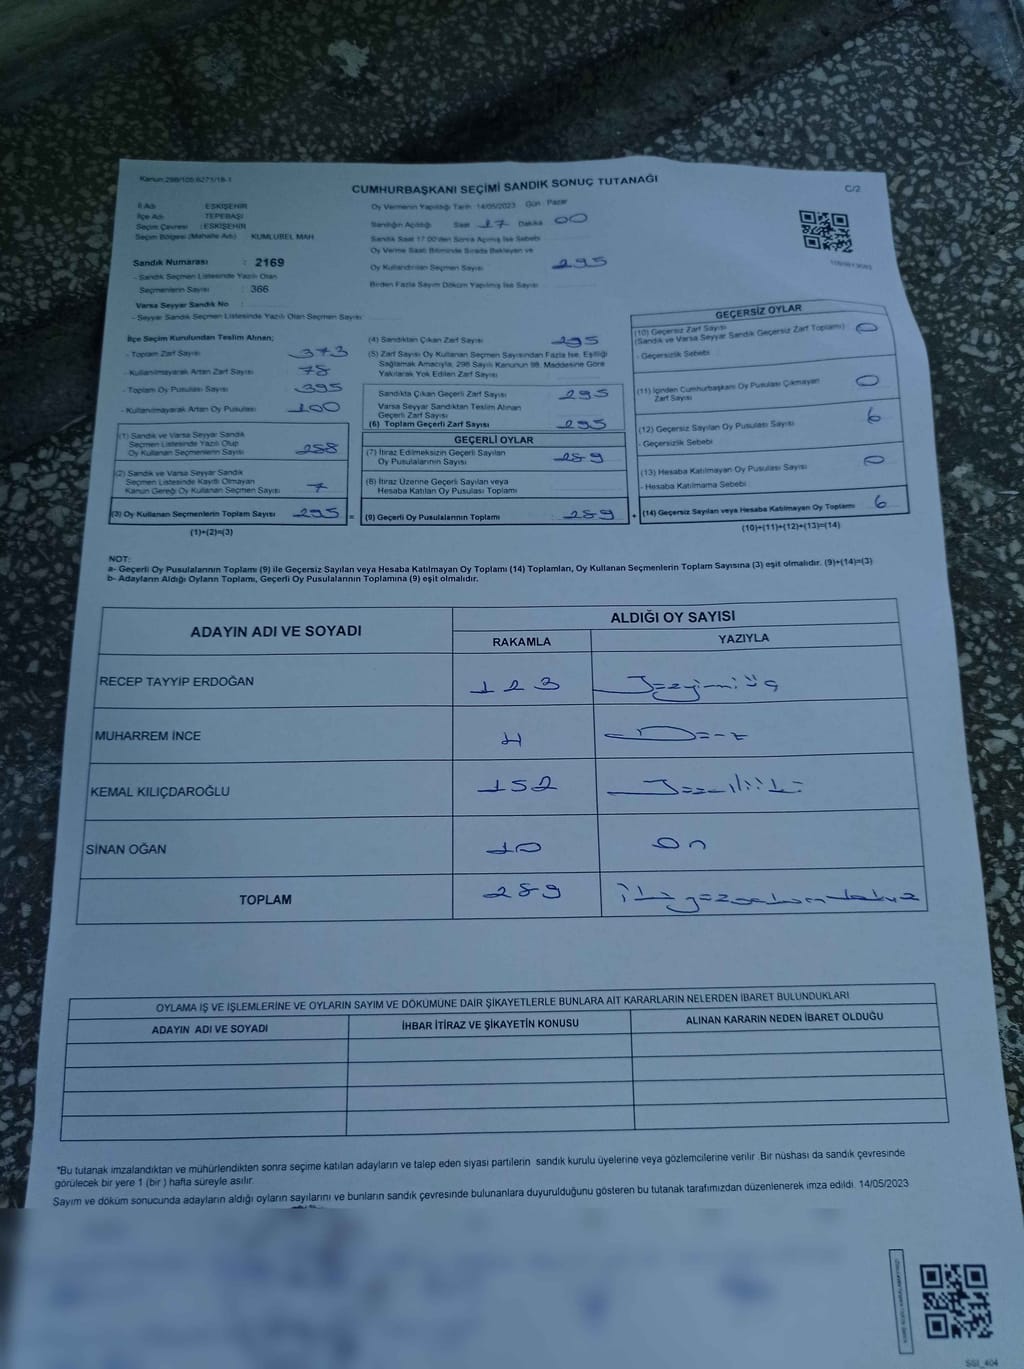 Kanun:298/105 6271/18-1
CUMHURBAŞKANI SEÇİMİ SANDIK SONUÇ TUTANAĞI
C/2
İl Adı ESKİŞEHİR
İlçe Adı TEPEBAŞI
Seçim Çevresi : ESKİŞEHİR
Seçim Bölgesi (Mahalle Adı) KUMLUBEL MAH.
Oy Vermenin Yapıldığı Tarih 14/05/2023 Gün : Pazar
Sandığın Açıldığı Saat 17 Dakika 00
Sandık Saat 17.00'den Sonra Açılmış İse Sebebi
Oy Verme Saati Bitiminde Sırada Bekleyen ve
Oy Kullandırılan Seçmen Sayısı 295
Birden Fazla Sayım Döküm Yapılmış İse Sayısı
Sandık Numarası : 2169
- Sandık Seçmen Listesinde Yazılı Olan
Seçmenlerin Sayısı : 366
Varsa Seyyar Sandık No :
- Seyyar Sandık Seçmen Listesinde Yazılı Olan Seçmen Sayısı
İlçe Seçim Kurulundan Teslim Alınan;
- Toplam Zarf Sayısı 373
- Kullanılmayarak Artan Zarf Sayısı 78
- Toplam Oy Pusulası Sayısı 395
- Kullanılmayarak Artan Oy Pusulası 100
(1) Sandık ve Varsa Seyyar Sandık
Seçmen Listesinde Yazılı Olup
Oy Kullanan Seçmenlerin Sayısı 288
(2) Sandık ve Varsa Seyyar Sandık
Seçmen Listesinde Kaydı Olmayan
Kanun Gereği Oy Kullanan Seçmen Sayısı 7
(3) Oy Kullanan Seçmenlerin Toplam Sayısı 295 =
(1)+(2)=(3)
(4) Sandıktan Çıkan Zarf Sayısı 295
(5) Zarf Sayısı Oy Kullanan Seçmen Sayısından Fazla İse, Eşitliği
Sağlamak Amacıyla, 298 Sayılı Kanunun 98. Maddesine Göre
Yakılarak Yok Edilen Zarf Sayısı
Sandıkta Çıkan Geçerli Zarf Sayısı 295
Varsa Seyyar Sandıktan Teslim Alınan
Geçerli Zarf Sayısı
(6) Toplam Geçerli Zarf Sayısı 295
GEÇERLİ OYLAR
(7) İtiraz Edilmeksizin Geçerli Sayılan
Oy Pusulalarının Sayısı 289
(8) İtiraz Üzerine Geçerli Sayılan veya
Hesaba Katılan Oy Pusulası Toplamı
(9) Geçerli Oy Pusulalarının Toplamı : 289 +
GEÇERSİZ OYLAR
(10) Geçersiz Zarf Sayısı
(Sandık ve Varsa Seyyar Sandık Geçersiz Zarf Toplamı) 0
- Geçersizlik Sebebi :
(11) İçinden Cumhurbaşkanı Oy Pusulası Çıkmayan
Zarf Sayısı 0
(12) Geçersiz Sayılan Oy Pusulası Sayısı 6
- Geçersizlik Sebebi
(13) Hesaba Katılmayan Oy Pusulası Sayısı 0
- Hesaba Katılmama Sebebi
(14) Geçersiz Sayılan veya Hesaba Katılmayan Oy Toplamı 6
(10)+(11)+(12)+(13)=(14)
NOT:
a- Geçerli Oy Pusulalarının Toplamı (9) ile Geçersiz Sayılan veya Hesaba Katılmayan Oy Toplamı (14) Toplamları, Oy Kullanan Seçmenlerin Toplam Sayısına (3) eşit olmalıdır. (9)+(14)=(3)
b- Adayların Aldığı Oyların Toplamı, Geçerli Oy Pusulalarının Toplamına (9) eşit olmalıdır.
ADAYIN ADI VE SOYADI ALDIĞI OY SAYISI
RAKAMLA YAZIYLA
RECEP TAYYİP ERDOĞAN 123
MUHARREM İNCE 4
KEMAL KILIÇDAROĞLU 152
SİNAN OĞAN 10 On
TOPLAM 289
OYLAMA İŞ VE İŞLEMLERİNE VE OYLARIN SAYIM VE DÖKÜMÜNE DAİR ŞİKAYETLERLE BUNLARA AİT KARARLARIN NELERDEN İBARET BULUNDUKLARI
ADAYIN ADI VE SOYADI İHBAR İTİRAZ VE ŞİKAYETİN KONUSU ALINAN KARARIN NEDEN İBARET OLDUĞU
*Bu tutanak imzalandıktan ve mühürlendikten sonra seçime katılan adayların ve talep eden siyasi partilerin sandık kurulu üyelerine veya gözlemcilerine verilir .Bir nüshası da sandık çevresinde
görülecek bir yere 1 (bir ) hafta süreyle asılır.
Sayım ve döküm sonucunda adayların aldığı oyların sayılarını ve bunların sandık çevresinde bulunanlara duyurulduğunu gösteren bu tutanak tarafımızdan düzenlenerek imza edildi. 14/05/2023
SSI_404